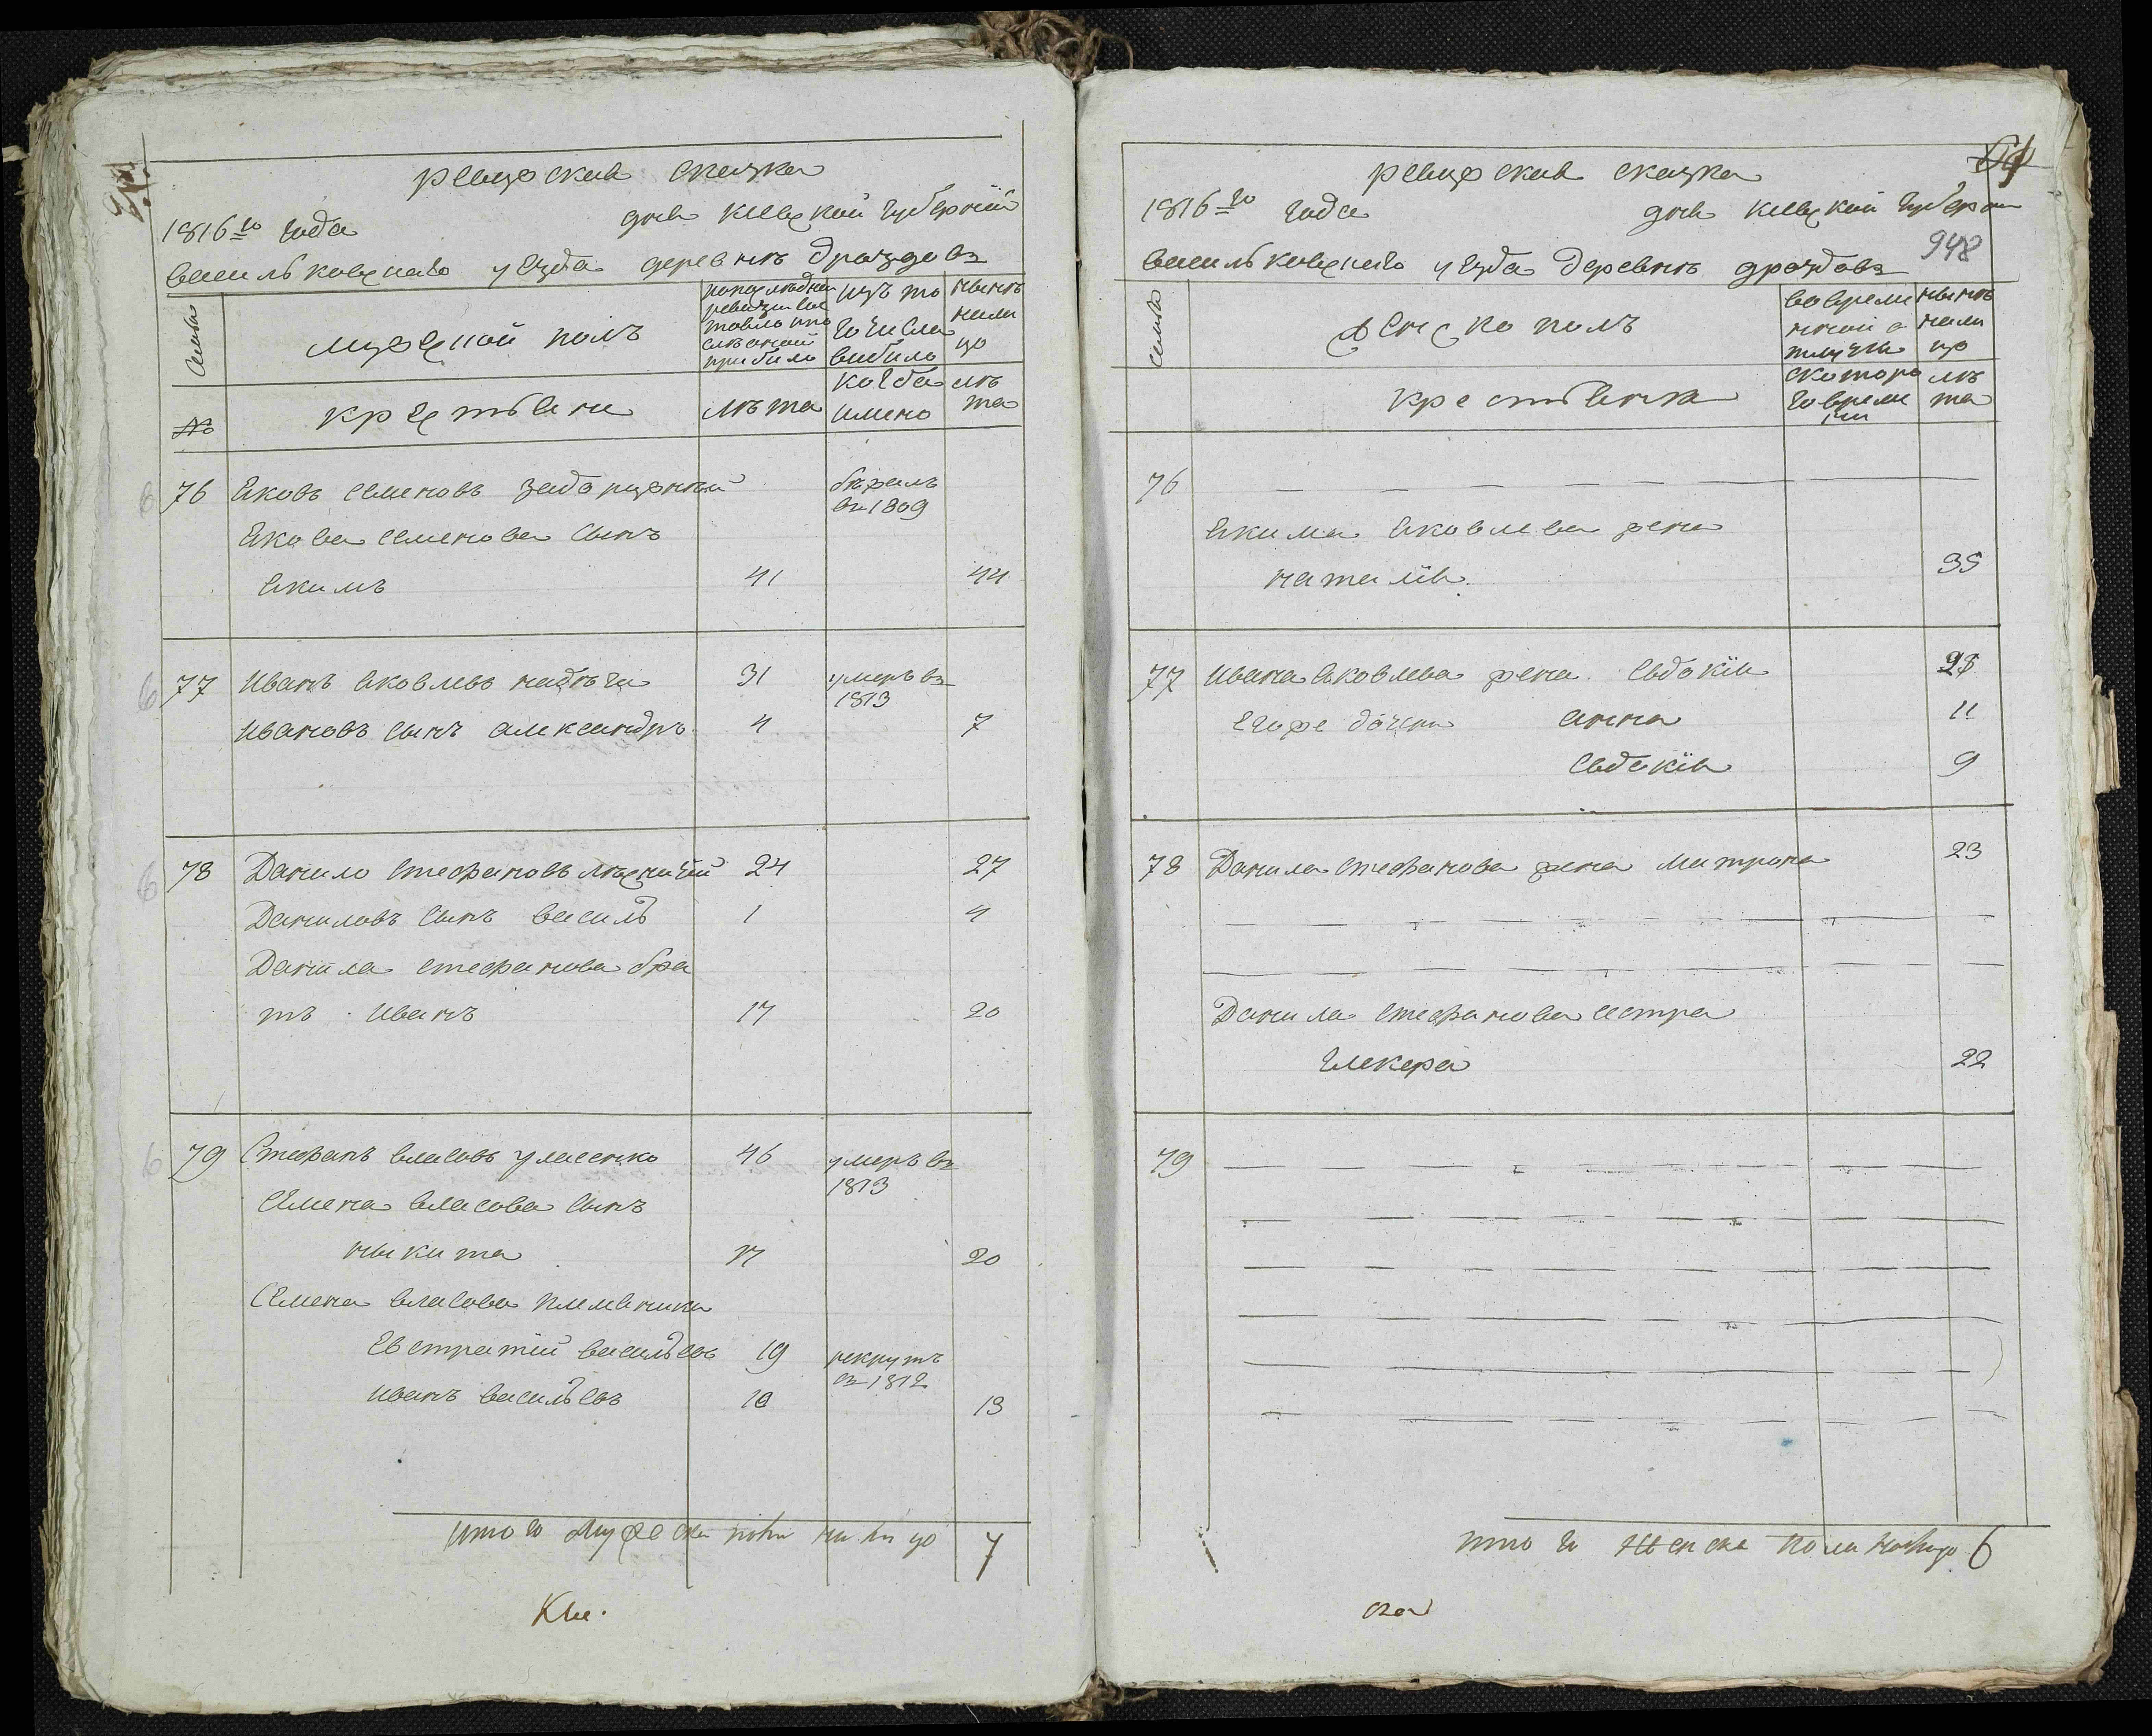 ревизская сказка
1816го года дня киевской губернии
васильковскаго уезда деревнѣ дроздовъ
Семьи
мужеской полъ
по последней ревизии состояло и после оной прибыло
изъ того числа выбыло
нынѣ на лицо
№
крестьяне
лѣта
когда имено
лѣта
76 Яковъ семеновъ бѣжалъ
въ 1809
Якова семенова сынъ
Якимъ 41 44
77 Иванъ яковлевъ 31 умеръ въ
1813
Ивановъ сынъ александръ 4 7
78 Данило стефановъ 24 27
Даниловъ сынъ василь 1 4
Данила стефанова бра
тъ Иванъ 17 20
79 Стефанъ власовъ уласенко 46 умеръ въ
1813
Семена власова сынъ
никита 17 20
Семена власова племяники
Евстратий васильевъ 19 рекрутъ
въ 1812
Иванъ васильевъ 10 13
итого мужеска пола на лицо 7
Кие.
ревизская сказка
1816го года дня киевской губернии
948
васильковскаго уезда деревнѣ дроздовъ
семьи
женско полъ
во временной отлучки
нынѣ на лицо
крестьянка
с которого времени
лѣта
76
Якима яковлева жена
наталия 35
77 Ивана яковлева жена евдокия
Его же дочери анна 11
евдокия 9
78 Данила стефанова жена матрона 23
Данила стефанова сестра
гликера 22
79
итого женска пола на лицо 6